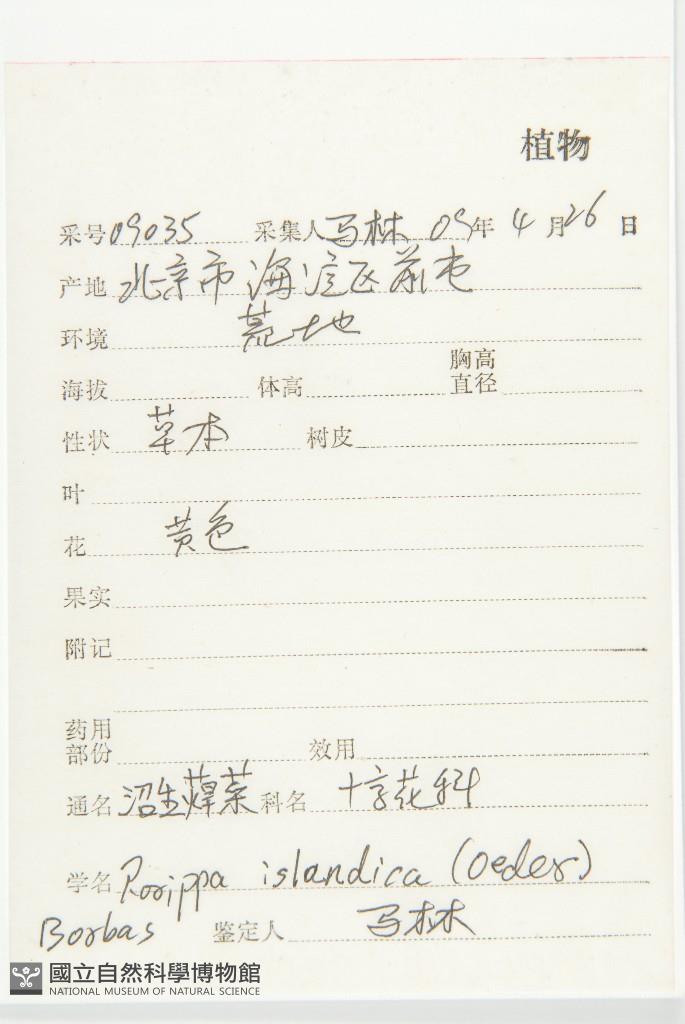 植物
采号 09035 采集人 马林 09年 4月 26日
产地 北京市海淀区前屯
环境 荒地
海拔 体高 胸高直径
性状 草本 树皮
叶
花 黄色
果实
附记
药用部份 效用
通名 沼生蔊菜 科名 十字花科
学名 Rorippa islandica (Oeder)
Borbas 鉴定人 马林
國立自然科學博物館
NATIONAL MUSEUM OF NATURAL SCIENCE